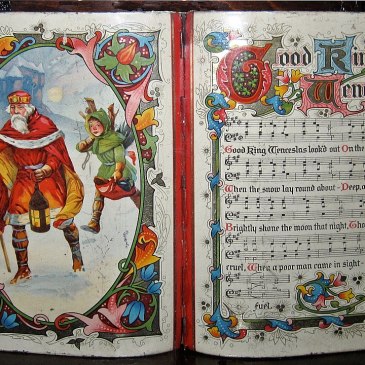 Good Kin
Wenc
Good King Wenceslas look'd out On the
When the snow lay round about - Deep, a
Brightly shone the moon that night, Tho
cruel, When a poor man came in sight -
fuel.